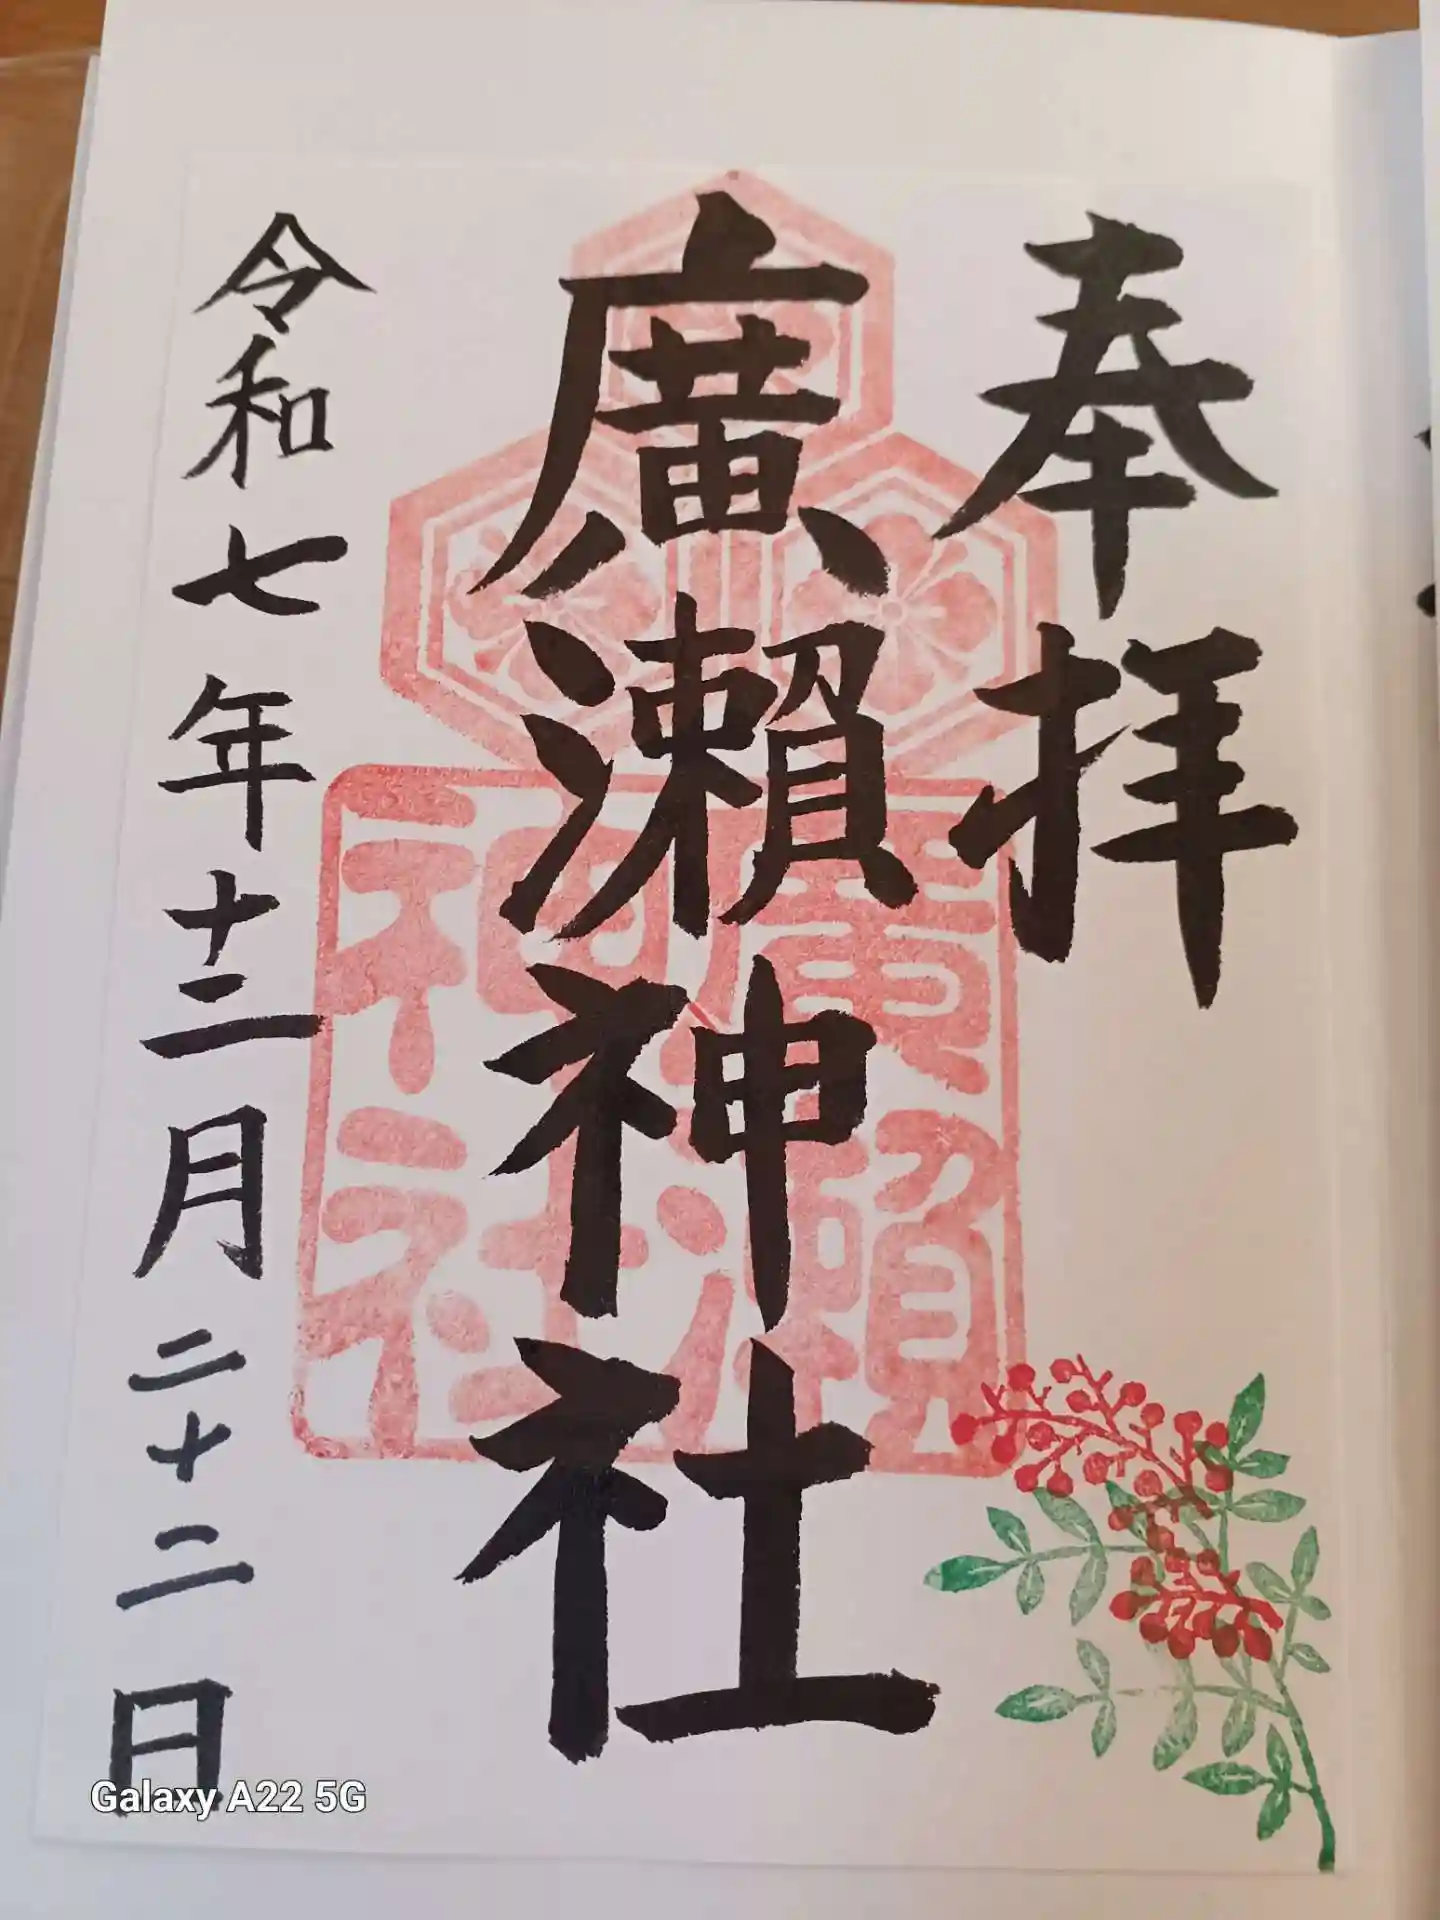 奉拝
廣瀬神社
令和七年十二月二十二日
廣瀬神社
Galaxy A22 5G